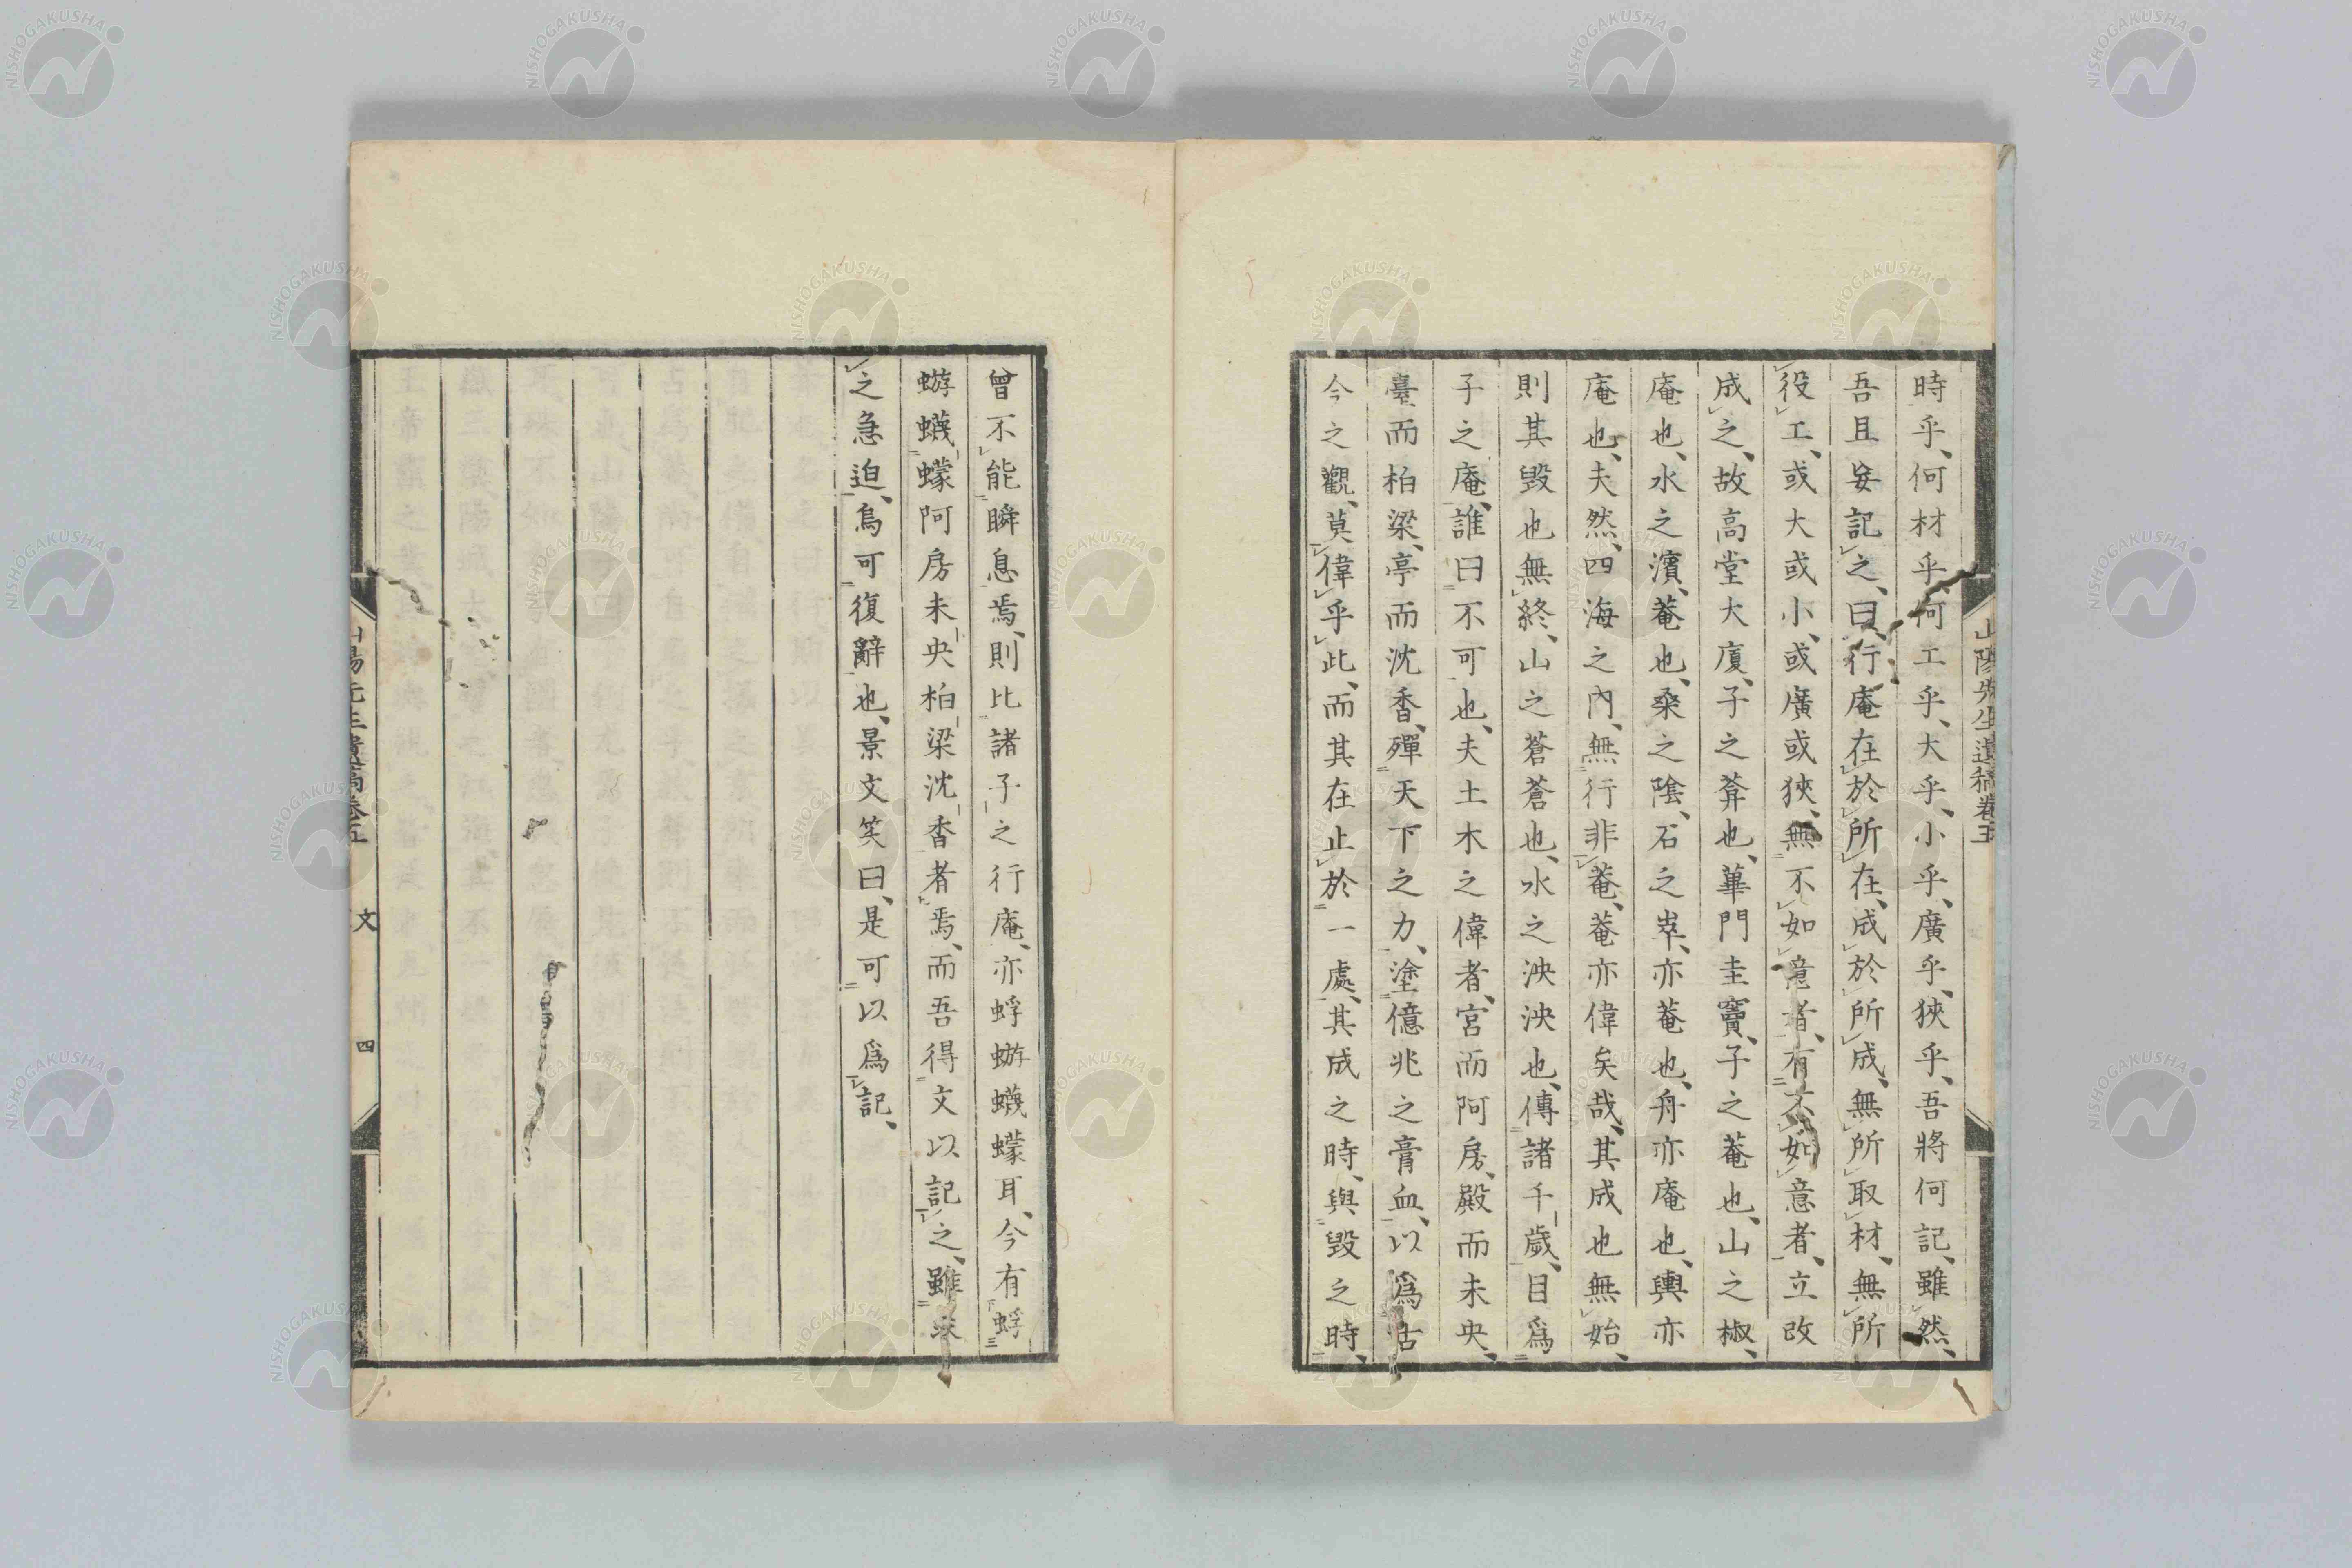 時乎、何材乎、何工乎、大乎、小乎、廣乎、狹乎、吾將何記、雖然、
吾且妄記之、曰、行庵在於所在、成於所成、無所取材、無所
役工、或大或小、或廣或狹、無不如意者、有不如意者、立改
成之、故高堂大廈、子之葊也、蓽門圭竇、子之菴也、山之椒、
庵也、水之濱、菴也、桑之陰、石之崒、亦菴也、舟亦庵也、輿亦
庵也、夫然、四海之內、無行非菴、菴亦偉矣哉、其成也無始、
則其毀也無終、山之蒼蒼也、水之泱泱也、傳諸千歲、目爲
子之庵、誰曰不可也、夫土木之偉者、宮而阿房、殿而未央、
臺而柏梁、亭而沈香、殫天下之力、塗億兆之膏血、以爲古
今之觀、莫偉乎此、而其在止於一處、其成之時、與毀之時、
山陽先生遺稿卷五
曾不能瞬息焉、則比諸子之行庵、亦蜉蝣蠛蠓耳、今有蜉
蝣蠛蠓阿房未央柏梁沈香者焉、而吾得文以記之、雖
之急迫、烏可復辭也、景文笑曰、是可以爲記、
山陽先生遺稿卷五
文
四
NISHOGAKUSHA